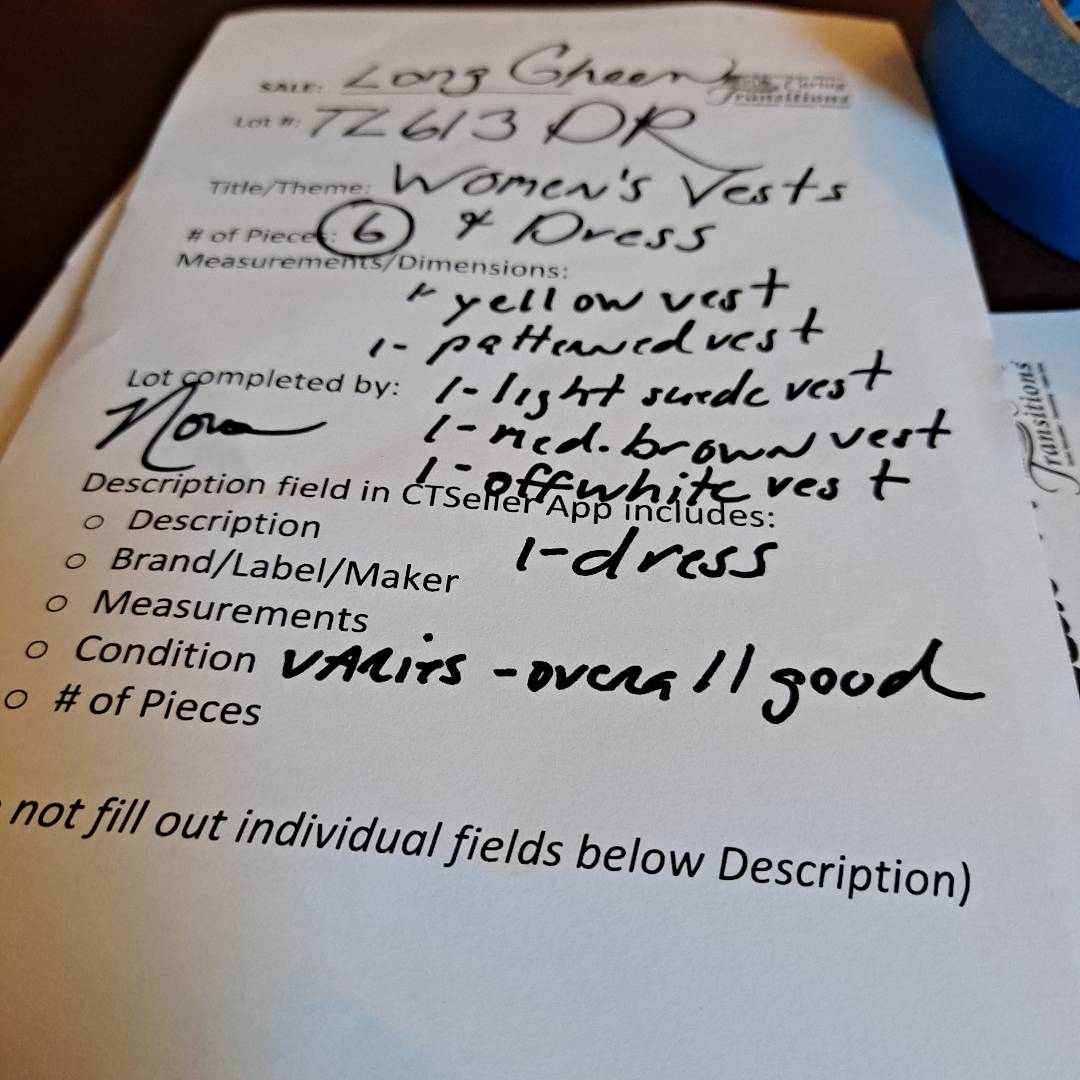 SALE: Long Gheen
Caring
Transitions
Lot #: TZ613 DR
Title/Theme: Women's Vests
# of Pieces: 6 & Dress
Measurements/Dimensions:
1- yellow vest
1- patterned vest
Lot completed by: 1-light suede vest
Nora 1-med. brown vest
1-offwhite vest
Description field in CTSeller App includes:
○ Description
1-dress
○ Brand/Label/Maker
○ Measurements
○ Condition VARies -overall good
○ # of Pieces
not fill out individual fields below Description)
Transitions